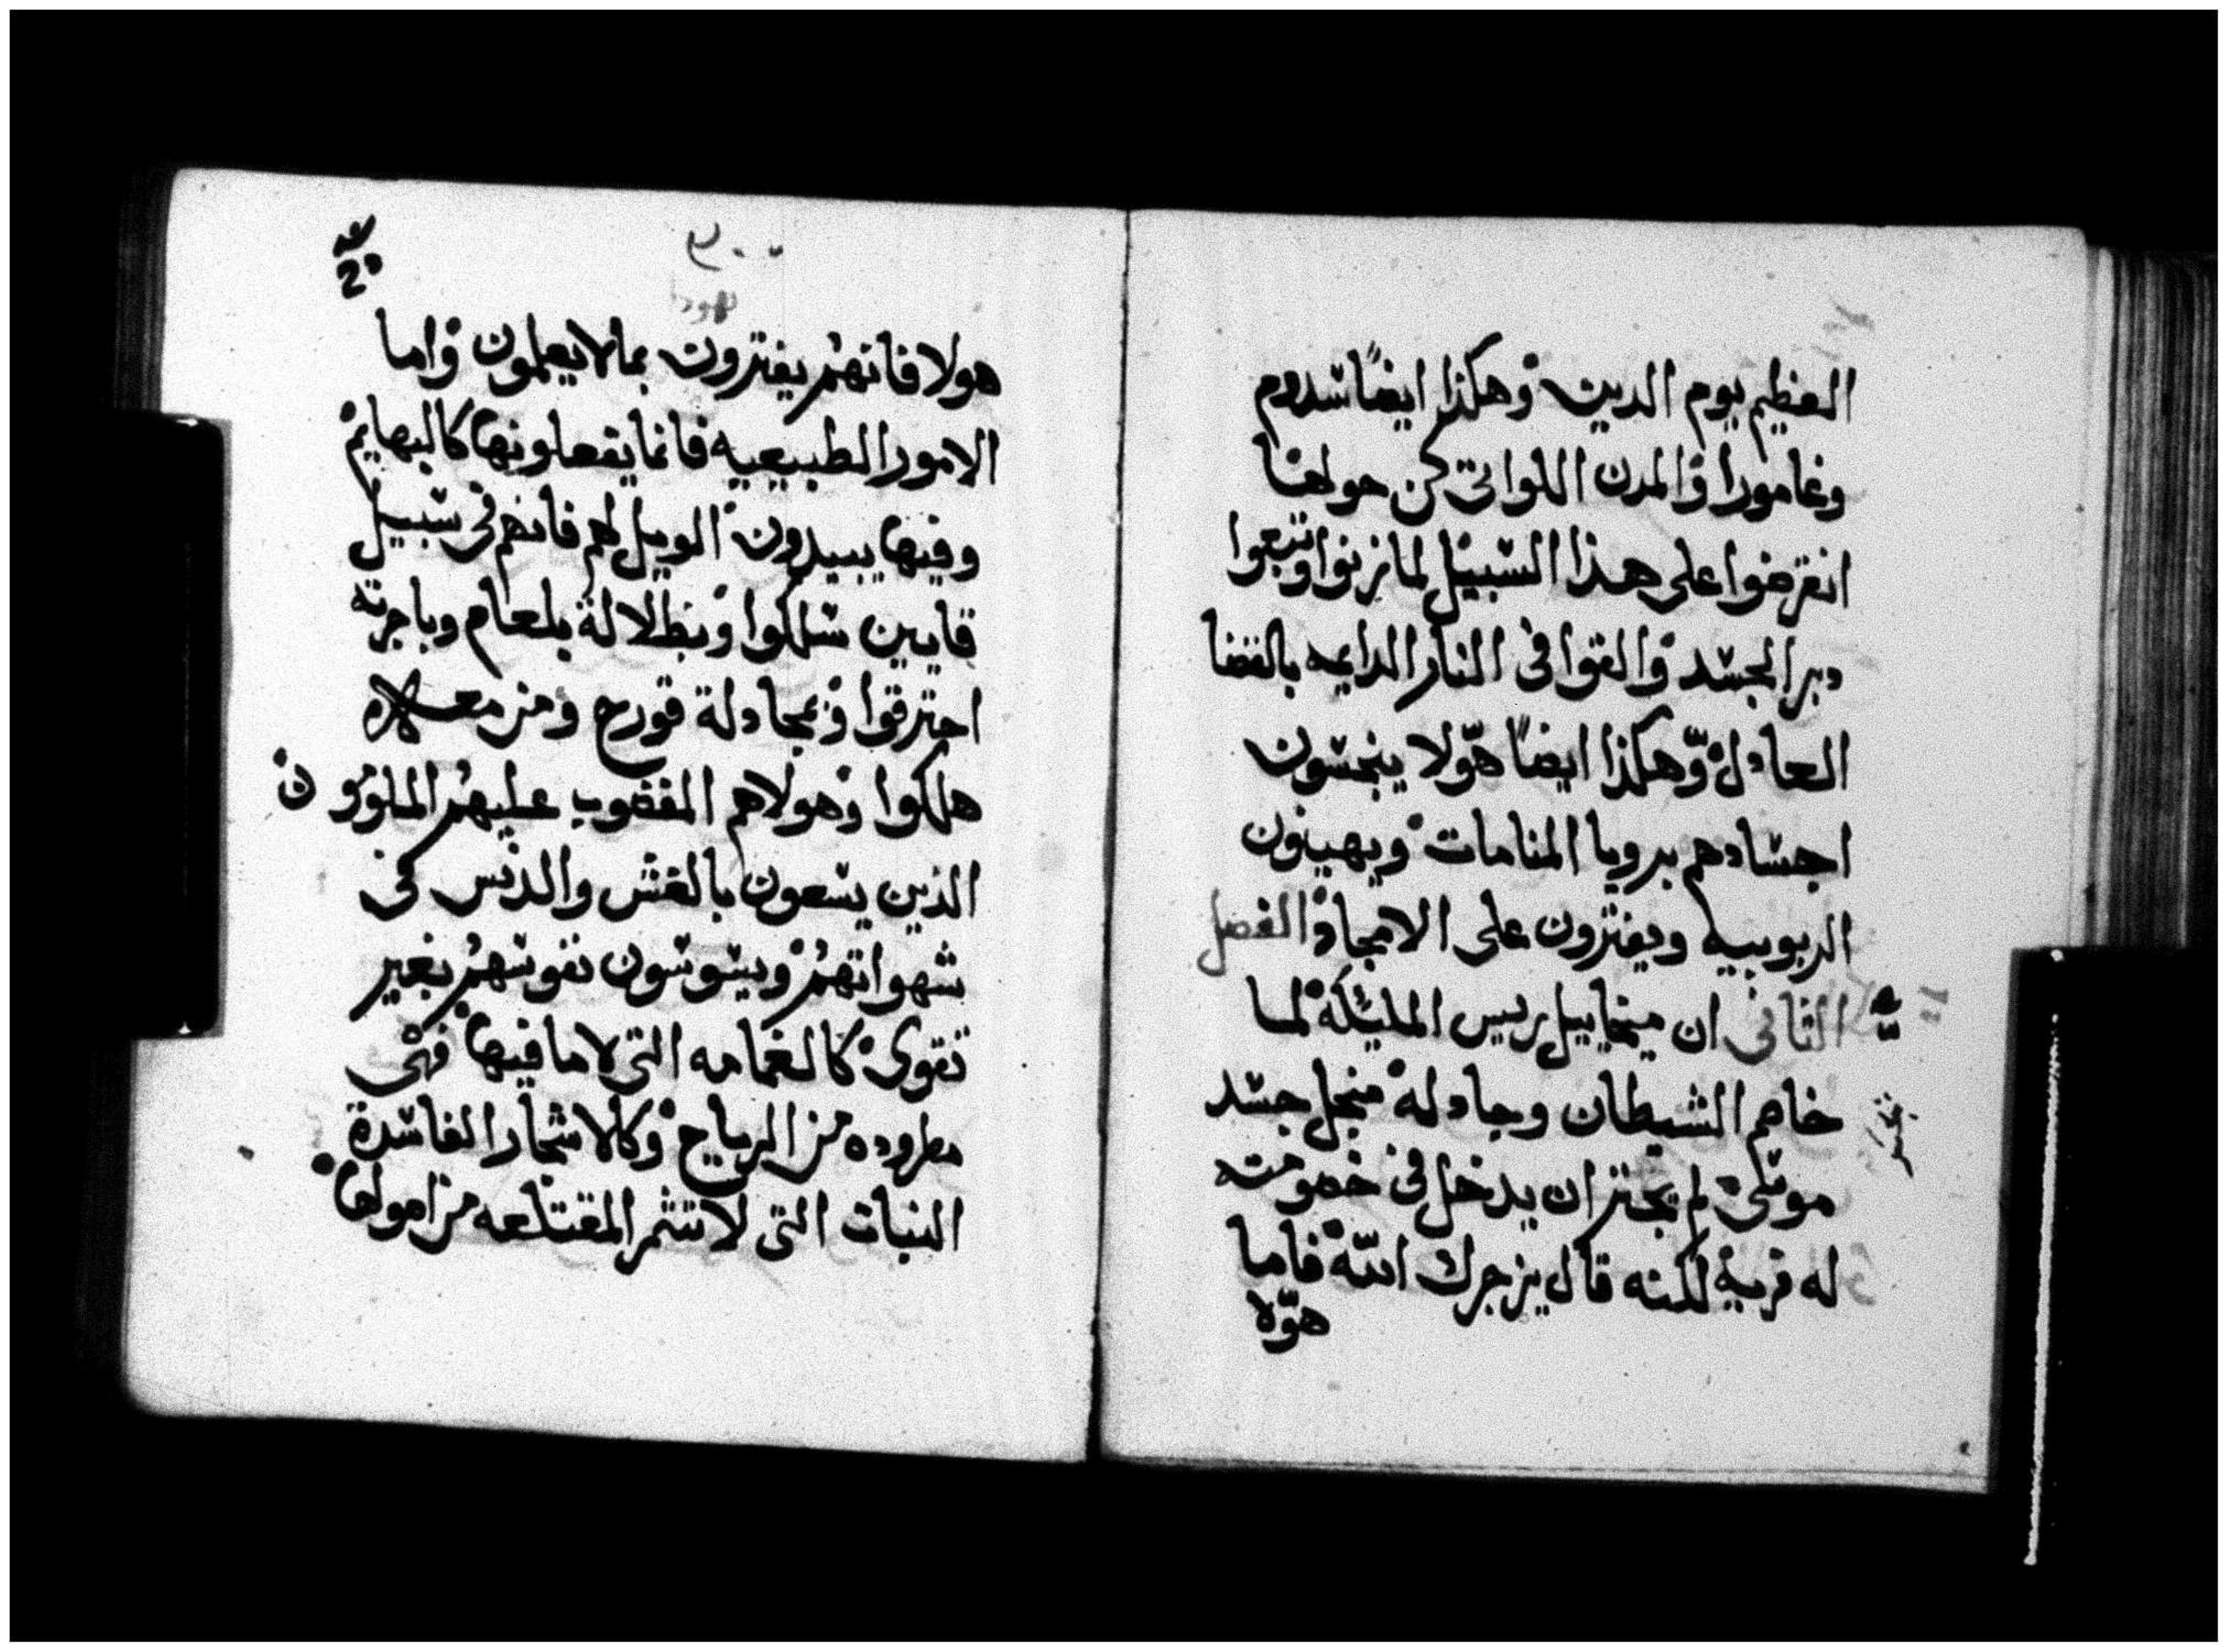 العظيم يوم الدين وهكذا ايضًا سدوم
وغامورا والمدن اللواتى كن حولها
انقرضوا على هذا السبيل لما زنوا وتبعوا
دبر الجسد والقوا فى النار الدايمه بالقضا
العادل وهكذا ايضًا هوّلا ينجسون
اجسادهم برويا المنامات ويهينون
الربوبيه ويفترون على الامجاد الفصل
الثانى ان ميخاييل ريس المليكة لما
خاصم الشيطان وجادله منجل جسد
موسى لم يجتز ان يدخل فى خصومته
له فرية لكنه قال يزجرك اللّه فاما
هوّلا
هولا فانهم يفترون بما لا يعلمون واما
الامور الطبيعيه فانما يفعلونها كالبهايم
وفيها يبيدون الويل لهم فانهم فى سبيل
قايين سلكوا وبظلالة بلعام وباجرته
احترقوا وبمجادلة قورح ومن معه
هلكوا وهولاهم المغضوب عليهم الملوزون
الذين يسعون بالغش والدنس فى
شهواتهم ويسوسون نفوسهم بغير
تقوى كالغمامه التى لا ما فيها فهى
مطروده من الرياح وكالاشجار الفاسدة
النبات التى لا تثمر المقتلعه من اصولها